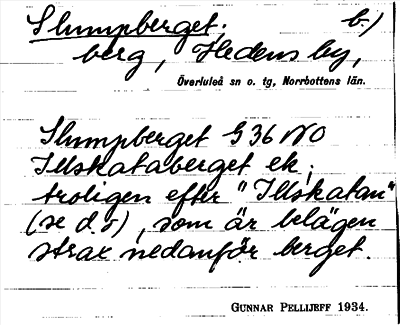 Slumpberget. b.)
berg, Hedens by,
Överluleå sn o. tg, Norrbottens län.
Slumpberget G 36 NO
Illskataberget ek.;
troligen efter "Illskatan"
(se d.o), som är belägen
strax nedanför berget.
GUNNAR PELLIJEFF 1934.